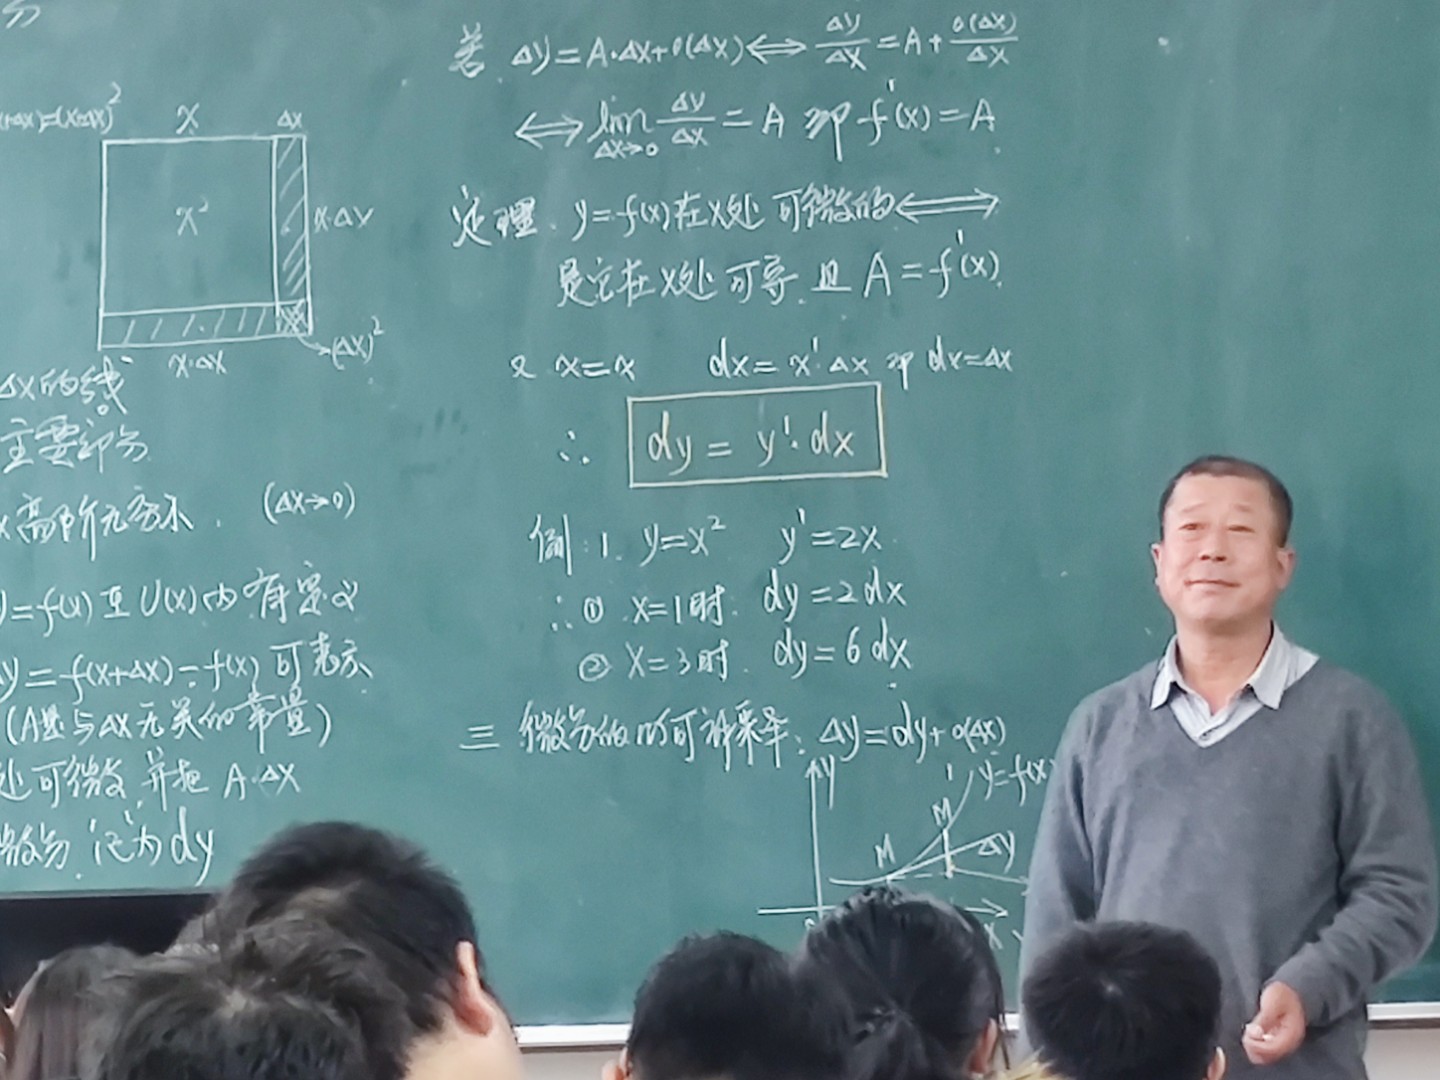 分
x+Δx)=(x+Δx)²
x
Δx
x²
x·Δx
x·Δx
(Δx)²
Δx的线
主要部分
x高阶无穷小. (Δx→0)
y=f(x)在U(x)内有定义
y=f(x+Δx)-f(x)可表示
(A是与Δx无关的常量)
处可微,并把 A·Δx
微分.记为dy
若 Δy=A·Δx+o(Δx)⟺Δy/Δx=A+o(Δx)/Δx
⟺lim Δx→0 Δy/Δx=A 即f'(x)=A
定理. y=f(x)在x处可微的⟺
是它在x处可导.且A=f'(x)
又 x=x dx=x'·Δx 即 dx=Δx
∴ dy=y'·dx
例:1. y=x² y'=2x
∴① x=1时. dy=2dx
② x=3时. dy=6dx
三 微分的 Δy=dy+o(Δx)
y
y=f(x)
M
M
Δy
x